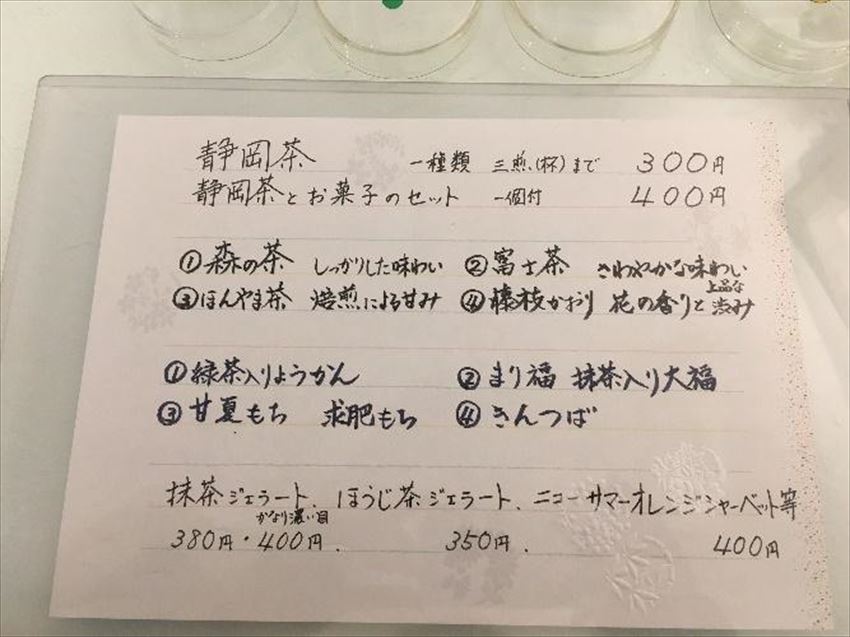 静岡茶 一種類 三煎(杯)まで 300円
静岡茶とお菓子のセット 一個付 400円
①森の茶 しっかりした味わい ②富士茶 さわやかな味わい
③ほんやま茶 焙煎による甘み ④榛枝かおり 花の香りと上品な渋み
①緑茶入りようかん ②まり福 抹茶入り大福
③甘夏もち 求肥もち ④きんつば
抹茶ジェラート、ほうじ茶ジェラート、ニューサマーオレンジシャーベット等
かなり濃い目
380円・400円. 350円. 400円